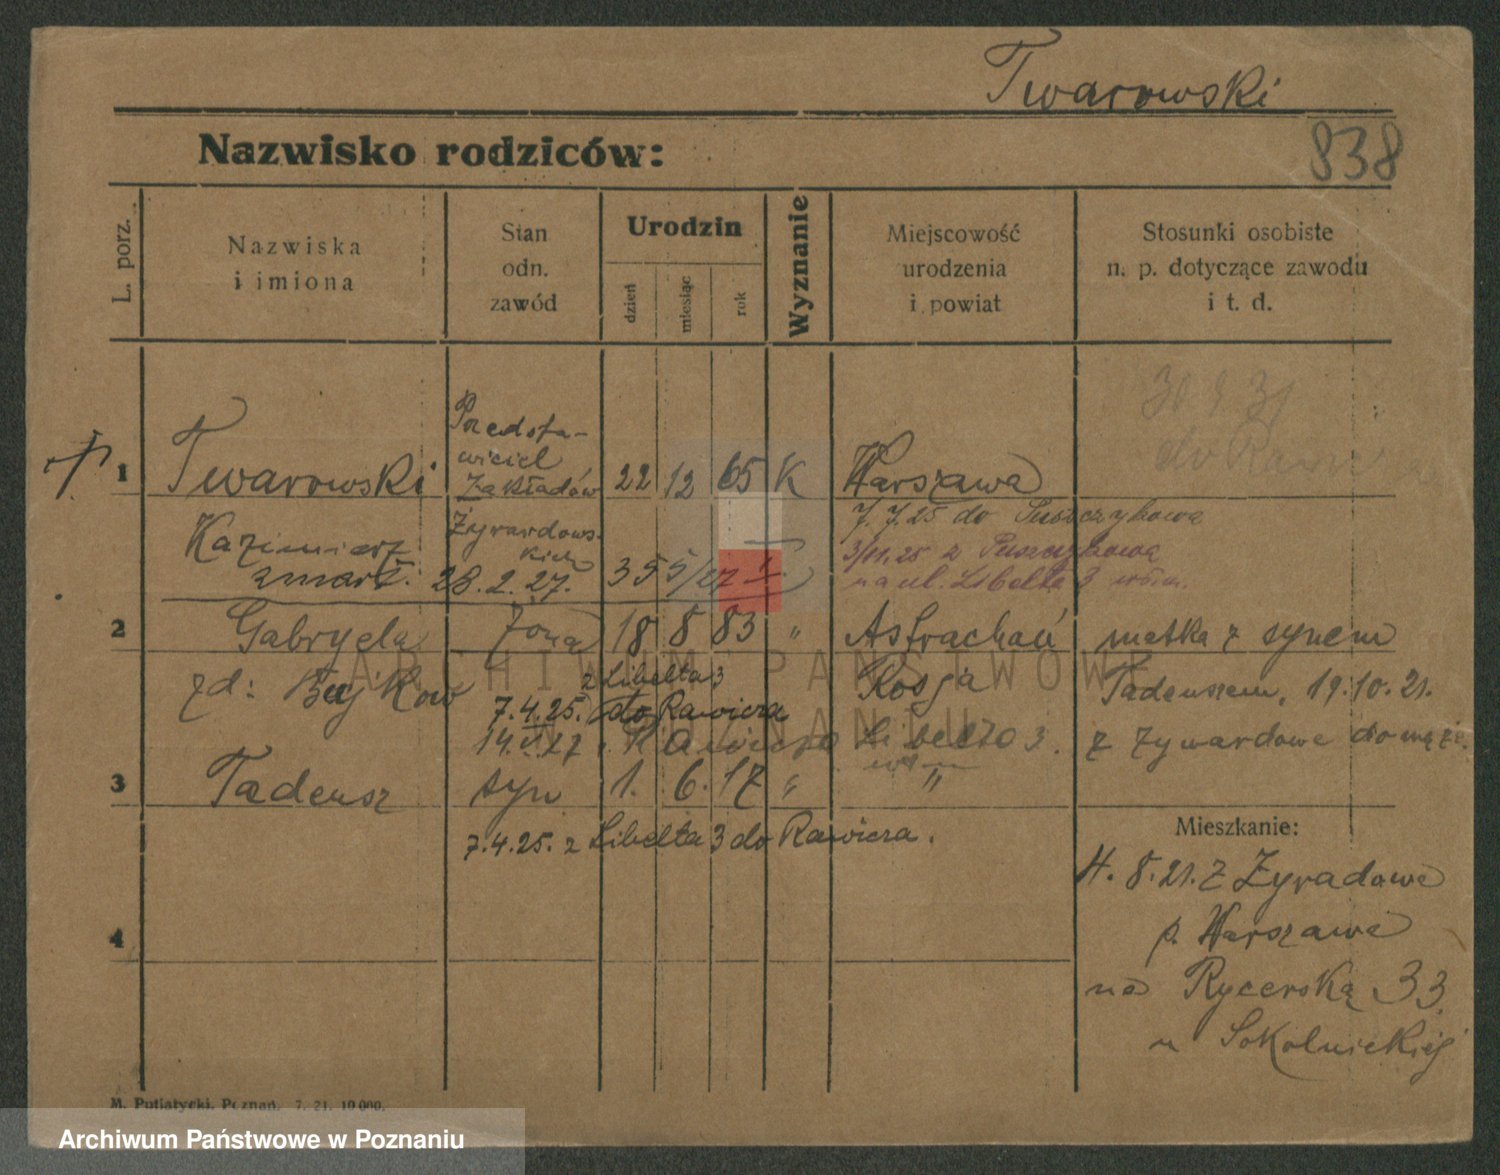 Twarowski
Nazwisko rodziców:
838
L. porz.
Nazwiska
i imiona
Stan
odn.
zawód
Urodzin
dzień
miesiąc
rok
Wyznanie
Miejscowość
urodzenia
i powiat
Stosunki osobiste
n. p. dotyczące zawodu
i t. d.
1 Twarowski Przedsta-
wiciel
Zakładów 22 12 65 K Warszawa
Kazimierz Żyrardows-
kich
7.7.25 do Puszczykowa
3/11.25 z Puszczykowa
na ul. Libelta 3
zmarł. 28.2.27. 355/27
2 Gabryela żona 18 8 83 " Astrachań matka z synem
zd: z Libelta 3 Rosja Tadeuszem, 19.10.21.
7.4.25. do Rawicza
z Żywardowa do męża.
3 Tadeusz syn 1. 6. 17 " "
7.4.25. z Libelta 3 do Rawicza.
Mieszkanie:
4.8.21. z Żyradowa
p. Warszawa
4
na Rycerską 33.
u Sokolnickiej
M. Putiatycki, Poznań. 7. 21. 10 000.
ARCHIWUM PAŃSTWOWE
W POZNANIU
Archiwum Państwowe w Poznaniu